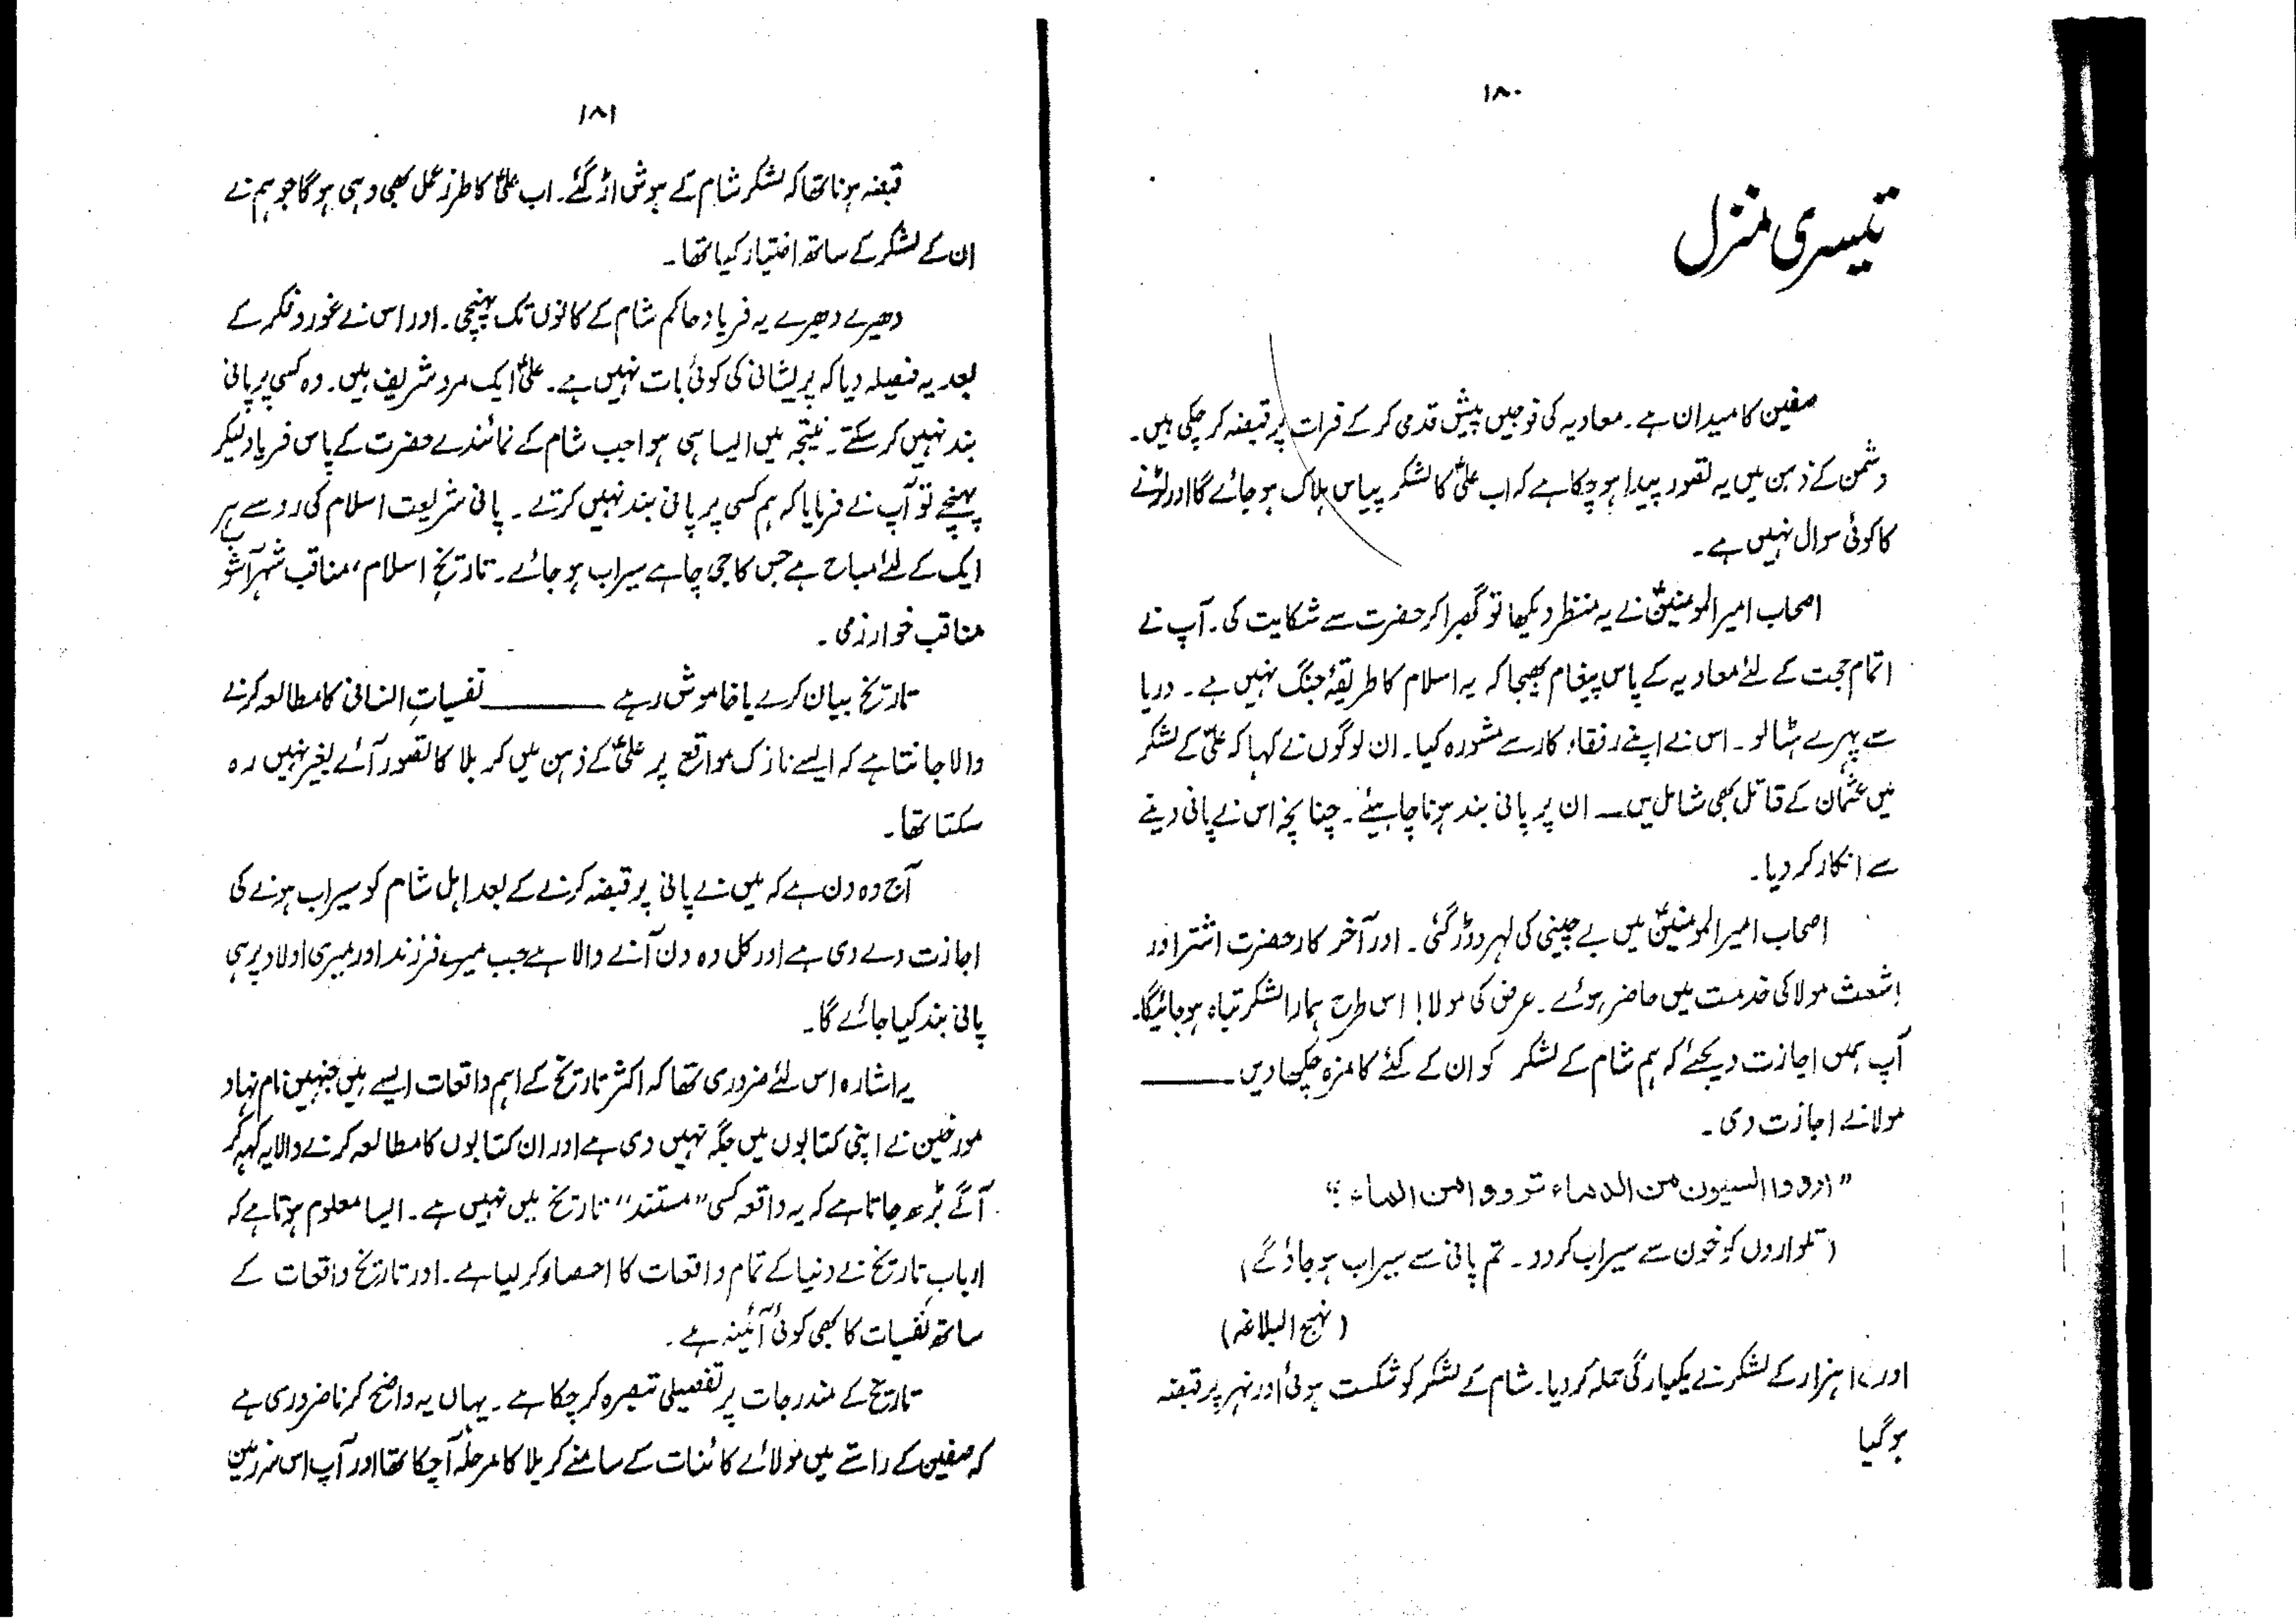 ۱۸۰
تیسری منزل
صفین کا میدان ہے۔ معاویہ کی فوجیں پیش قدمی کر کے فرات پر قبضہ کر چکی ہیں۔
دشمن کے ذہن میں یہ تصور پیدا ہو چکا ہے کہ اب علیؑ کا لشکر پیاس ہلاک ہو جائے گا اور لڑنے
کا کوئی سوال نہیں ہے۔
اصحاب امیرالمومنینؑ نے یہ منظر دیکھا تو گھبرا کر حضرت سے شکایت کی۔ آپ نے
اتمام حجت کے لئے معاویہ کے پاس پیغام بھیجا کہ یہ اسلام کا طریقۂ جنگ نہیں ہے۔ دریا
سے پہرے ہٹالو۔ اس نے اپنے رفقاء کار سے مشورہ کیا۔ ان لوگوں نے کہا کہ علیؑ کے لشکر
میں عثمان کے قاتل بھی شامل ہیں ــ ان پر پانی بند ہونا چاہیئے۔ چنانچہ اس نے پانی دینے
سے انکار کر دیا۔
اصحاب امیرالمومنینؑ میں بے چینی کی لہر دوڑ گئی۔ اور آخر کار حضرت اشتر اور
اشعث مولا کی خدمت میں حاضر ہوئے۔ عرض کی مولا! اس طرح ہمارا لشکر تباہ ہو جائیگا۔
آپ ہمیں اجازت دیجئے کہ ہم شام کے لشکر کو ان کے کئے کا مزہ چکھا دیں ــــــــ
مولا نے اجازت دی۔
”ارووا السیون من الدماء تروووا من الماء“
(تلواروں کو خون سے سیراب کر دو۔ تم پانی سے سیراب ہو جاؤ گے)
(نہج البلاغہ)
اور ۱۷ ہزار کے لشکر نے یکبارگی حملہ کر دیا۔ شام کے لشکر کو شکست ہوئی اور نہر پر قبضہ
ہو گیا
۱۸۱
قبضہ ہونا تھا کہ لشکر شام کے ہوش اڑ گئے۔ اب علیؑ کا طرز عمل بھی وہی ہو گا جو ہم نے
ان کے لشکر کے ساتھ اختیار کیا تھا۔
دھیرے دھیرے یہ فریاد حاکم شام کے کانوں تک پہنچی۔ اور اس نے غور و فکر کے
بعد یہ فیصلہ دیا کہ پریشانی کی کوئی بات نہیں ہے۔ علیؑ ایک مرد شریف ہیں۔ وہ کسی پر پانی
بند نہیں کر سکتے۔ نتیجہ میں ایسا ہی ہوا جب شام کے نمائندے حضرت کے پاس فریاد لیکر
پہنچے تو آپ نے فرمایا کہ ہم کسی پر پانی بند نہیں کرتے۔ پانی شریعت اسلام کی رو سے ہر
ایک کے لئے مباح ہے جس کا جی چاہے سیراب ہو جائے۔ تاریخ اسلام، مناقب شہر آشوب
مناقب خوارزمی۔
تاریخ بیان کرے یا خاموش رہے ــــــــ نفسیاتِ انسانی کا مطالعہ کرنے
والا جانتا ہے کہ ایسے نازک مواقع پر علیؑ کے ذہن میں کربلا کا تصور آئے بغیر نہیں رہ
سکتا تھا۔
آج وہ دن ہے کہ میں نے پانی پر قبضہ کرنے کے بعد اہل شام کو سیراب ہونے کی
اجازت دے دی ہے اور کل وہ دن آنے والا ہے جب میرے فرزند اور میری اولاد پر ہی
پانی بند کیا جائے گا۔
یہ اشارہ اس لئے ضروری تھا کہ اکثر تاریخ کے اہم واقعات ایسے ہیں جنہیں نام نہاد
مورخین نے اپنی کتابوں میں جگہ نہیں دی ہے اور ان کتابوں کا مطالعہ کرنے والا یہ کہہ کر
آگے بڑھ جاتا ہے کہ یہ واقعہ کسی ”مستند“ تاریخ میں نہیں ہے۔ ایسا معلوم ہوتا ہے کہ
اربابِ تاریخ نے دنیا کے تمام واقعات کا احصاء کر لیا ہے۔ اور تاریخ واقعات کے
ساتھ نفسیات کا بھی کوئی آئینہ ہے۔
تاریخ کے مندرجات پر تفصیلی تبصرہ کر چکا ہے۔ یہاں یہ واضح کرنا ضروری ہے
کہ صفین کے راستے میں مولائے کائنات کے سامنے کربلا کا مرحلہ آ چکا تھا اور آپ اس سرزمین